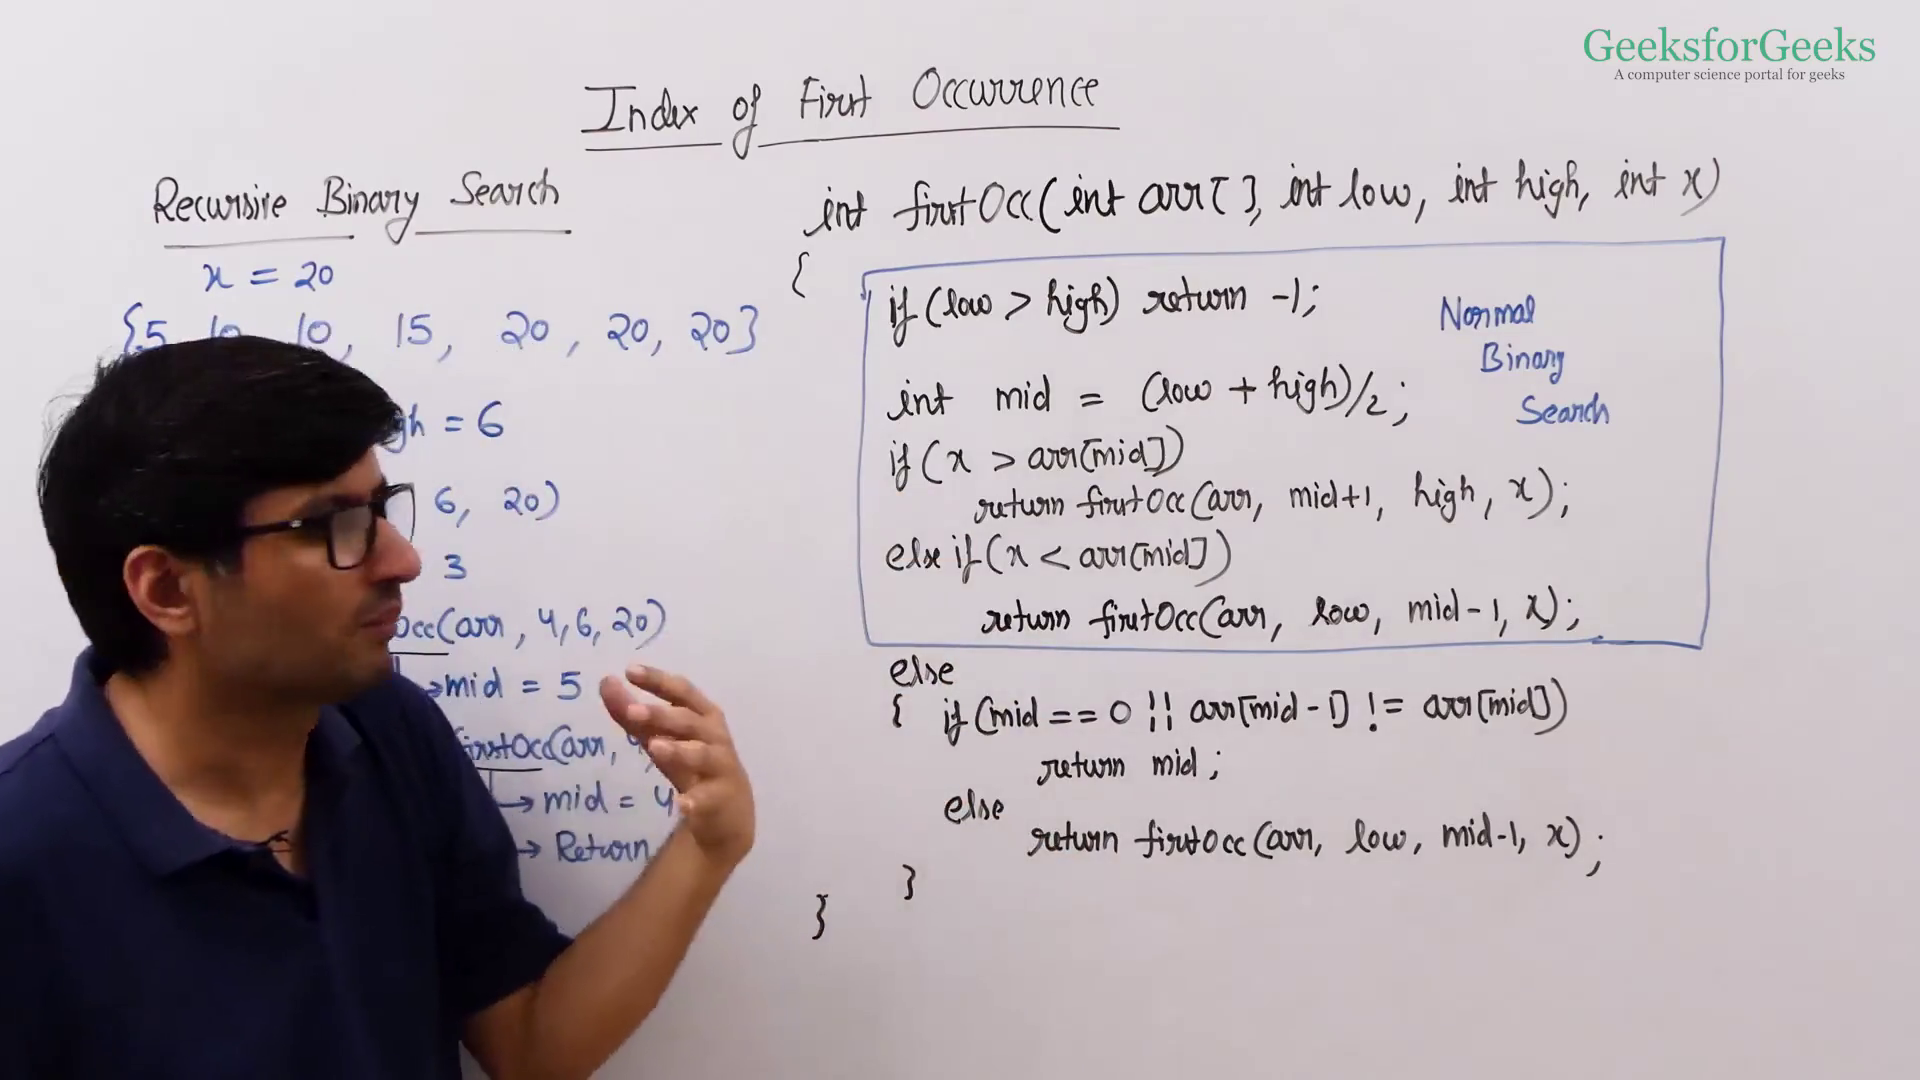 GeeksforGeeks
A computer science portal for geeks
Index of First Occurrence
Recursive Binary Search
x = 20
{5, 10, 10, 15, 20, 20, 20}
gh = 6
6, 20)
3
Occ(arr, 4, 6, 20)
→mid = 5
firstOcc(arr, 4,
→ mid = 4
→ Return
int firstOcc(int arr[], int low, int high, int x)
{
if(low > high) return -1;
int mid = (low + high)/2;
if(x > arr[mid])
return firstOcc(arr, mid+1, high, x);
else if(x < arr[mid])
return firstOcc(arr, low, mid-1, x);
Normal
Binary
Search
else
{ if(mid == 0 || arr[mid-1] != arr[mid])
return mid;
else
return firstOcc(arr, low, mid-1, x);
}
}